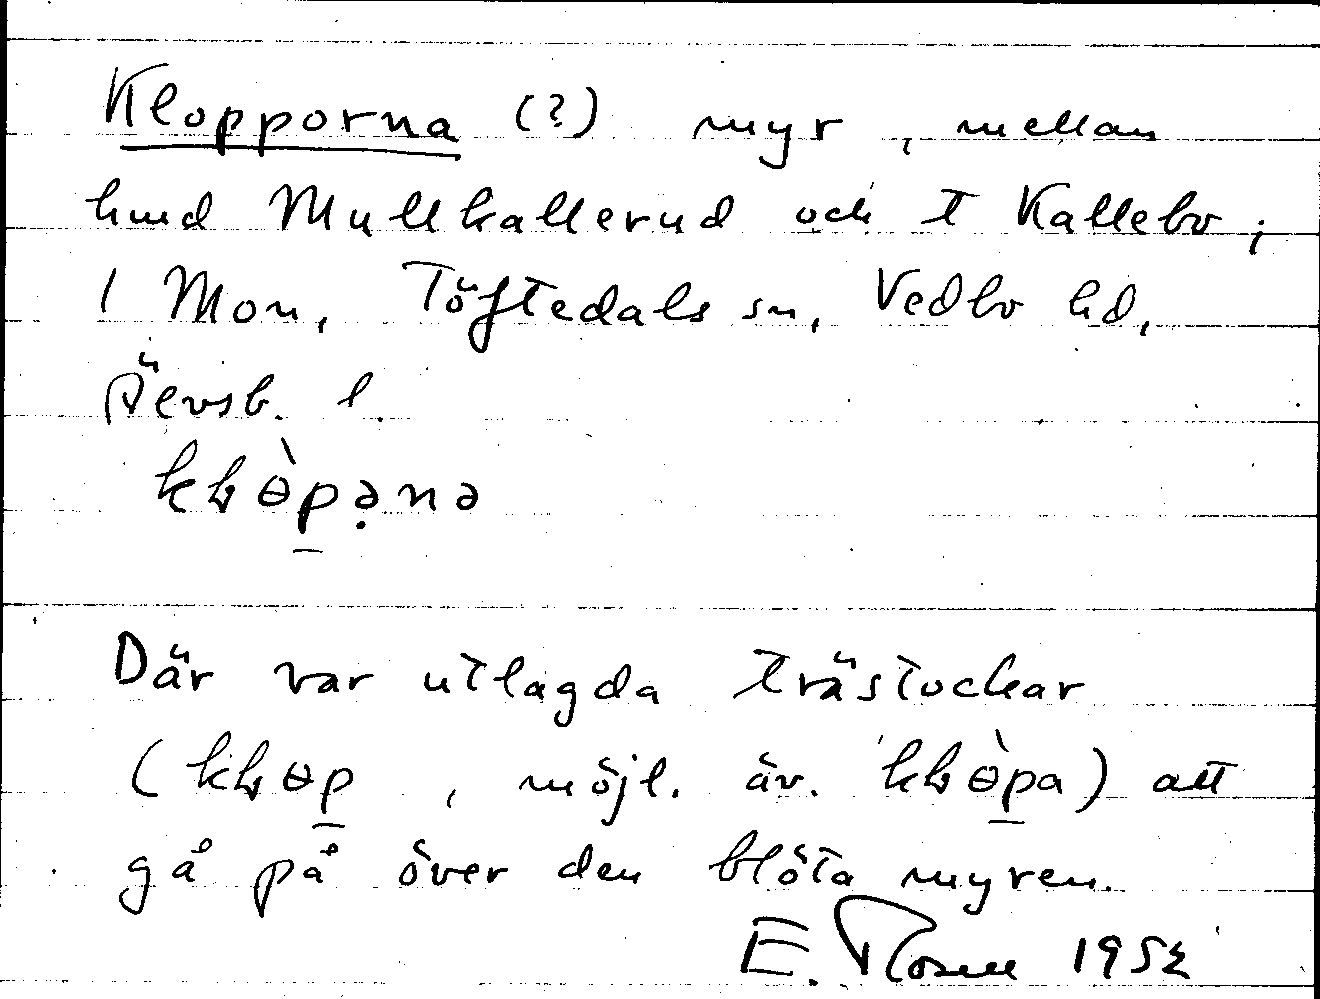 Klopporna (?) myr, mellan
hmd Mullkallerud och t Kallebo;
1 Mon, Töftedals sn, Vedbo hd,
Älvsb. l.
kɽɵ̀p̲ə̣nə
Där var utlagda trästockar
(kɽɵp̲, möjl. äv. kɽɵ̀p̲a) att
gå på över den blöta myren.
E. Rosell